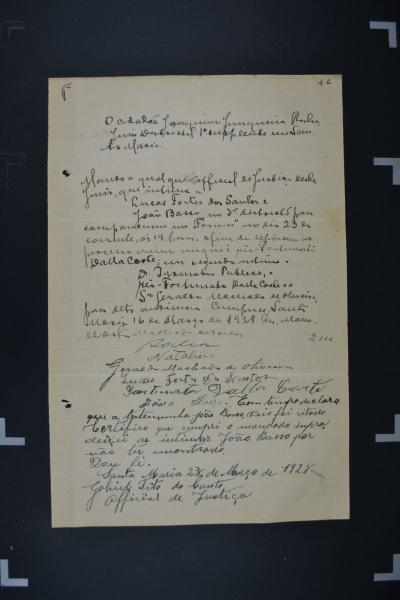 46
O cidadão Joaquim Junqueira Rocha
Juiz Districtal 1º supplente em San
ta Maria
Mando a qual quer official de Justiça deste
Juizo, que intime a
Lucas Fortes dos Santos e
João Basso, no 3º districto para
comparecerem no "Forum" no dia 23 do
corrente, ás 14 horas, afim de
processo crime em que é réo Fortunato
Dalla Corte; um
Dr. Promotor Publico, o
Réo Fortunato Dalla Corte e o
Sr Geraldo Machado de Oliveira,
Cumpra-se. Santa
Maria, 16 de Março de 1928. Eu,
Rocha
Natalicio
Geraldo Machado de Oliveira
Lucas Fortes dos Santos
Fortunato Dalla Corte
João Basso. Em tempo declaro
que a testemunha João Basso não foi citado
Certifico que cumpri o mandado supra,
deixei de intimar João Basso por
não ter encontrado.
Dou fé.
Santa Maria 23, de Março de 1928.
Tito do Canto,
Official de Justiça